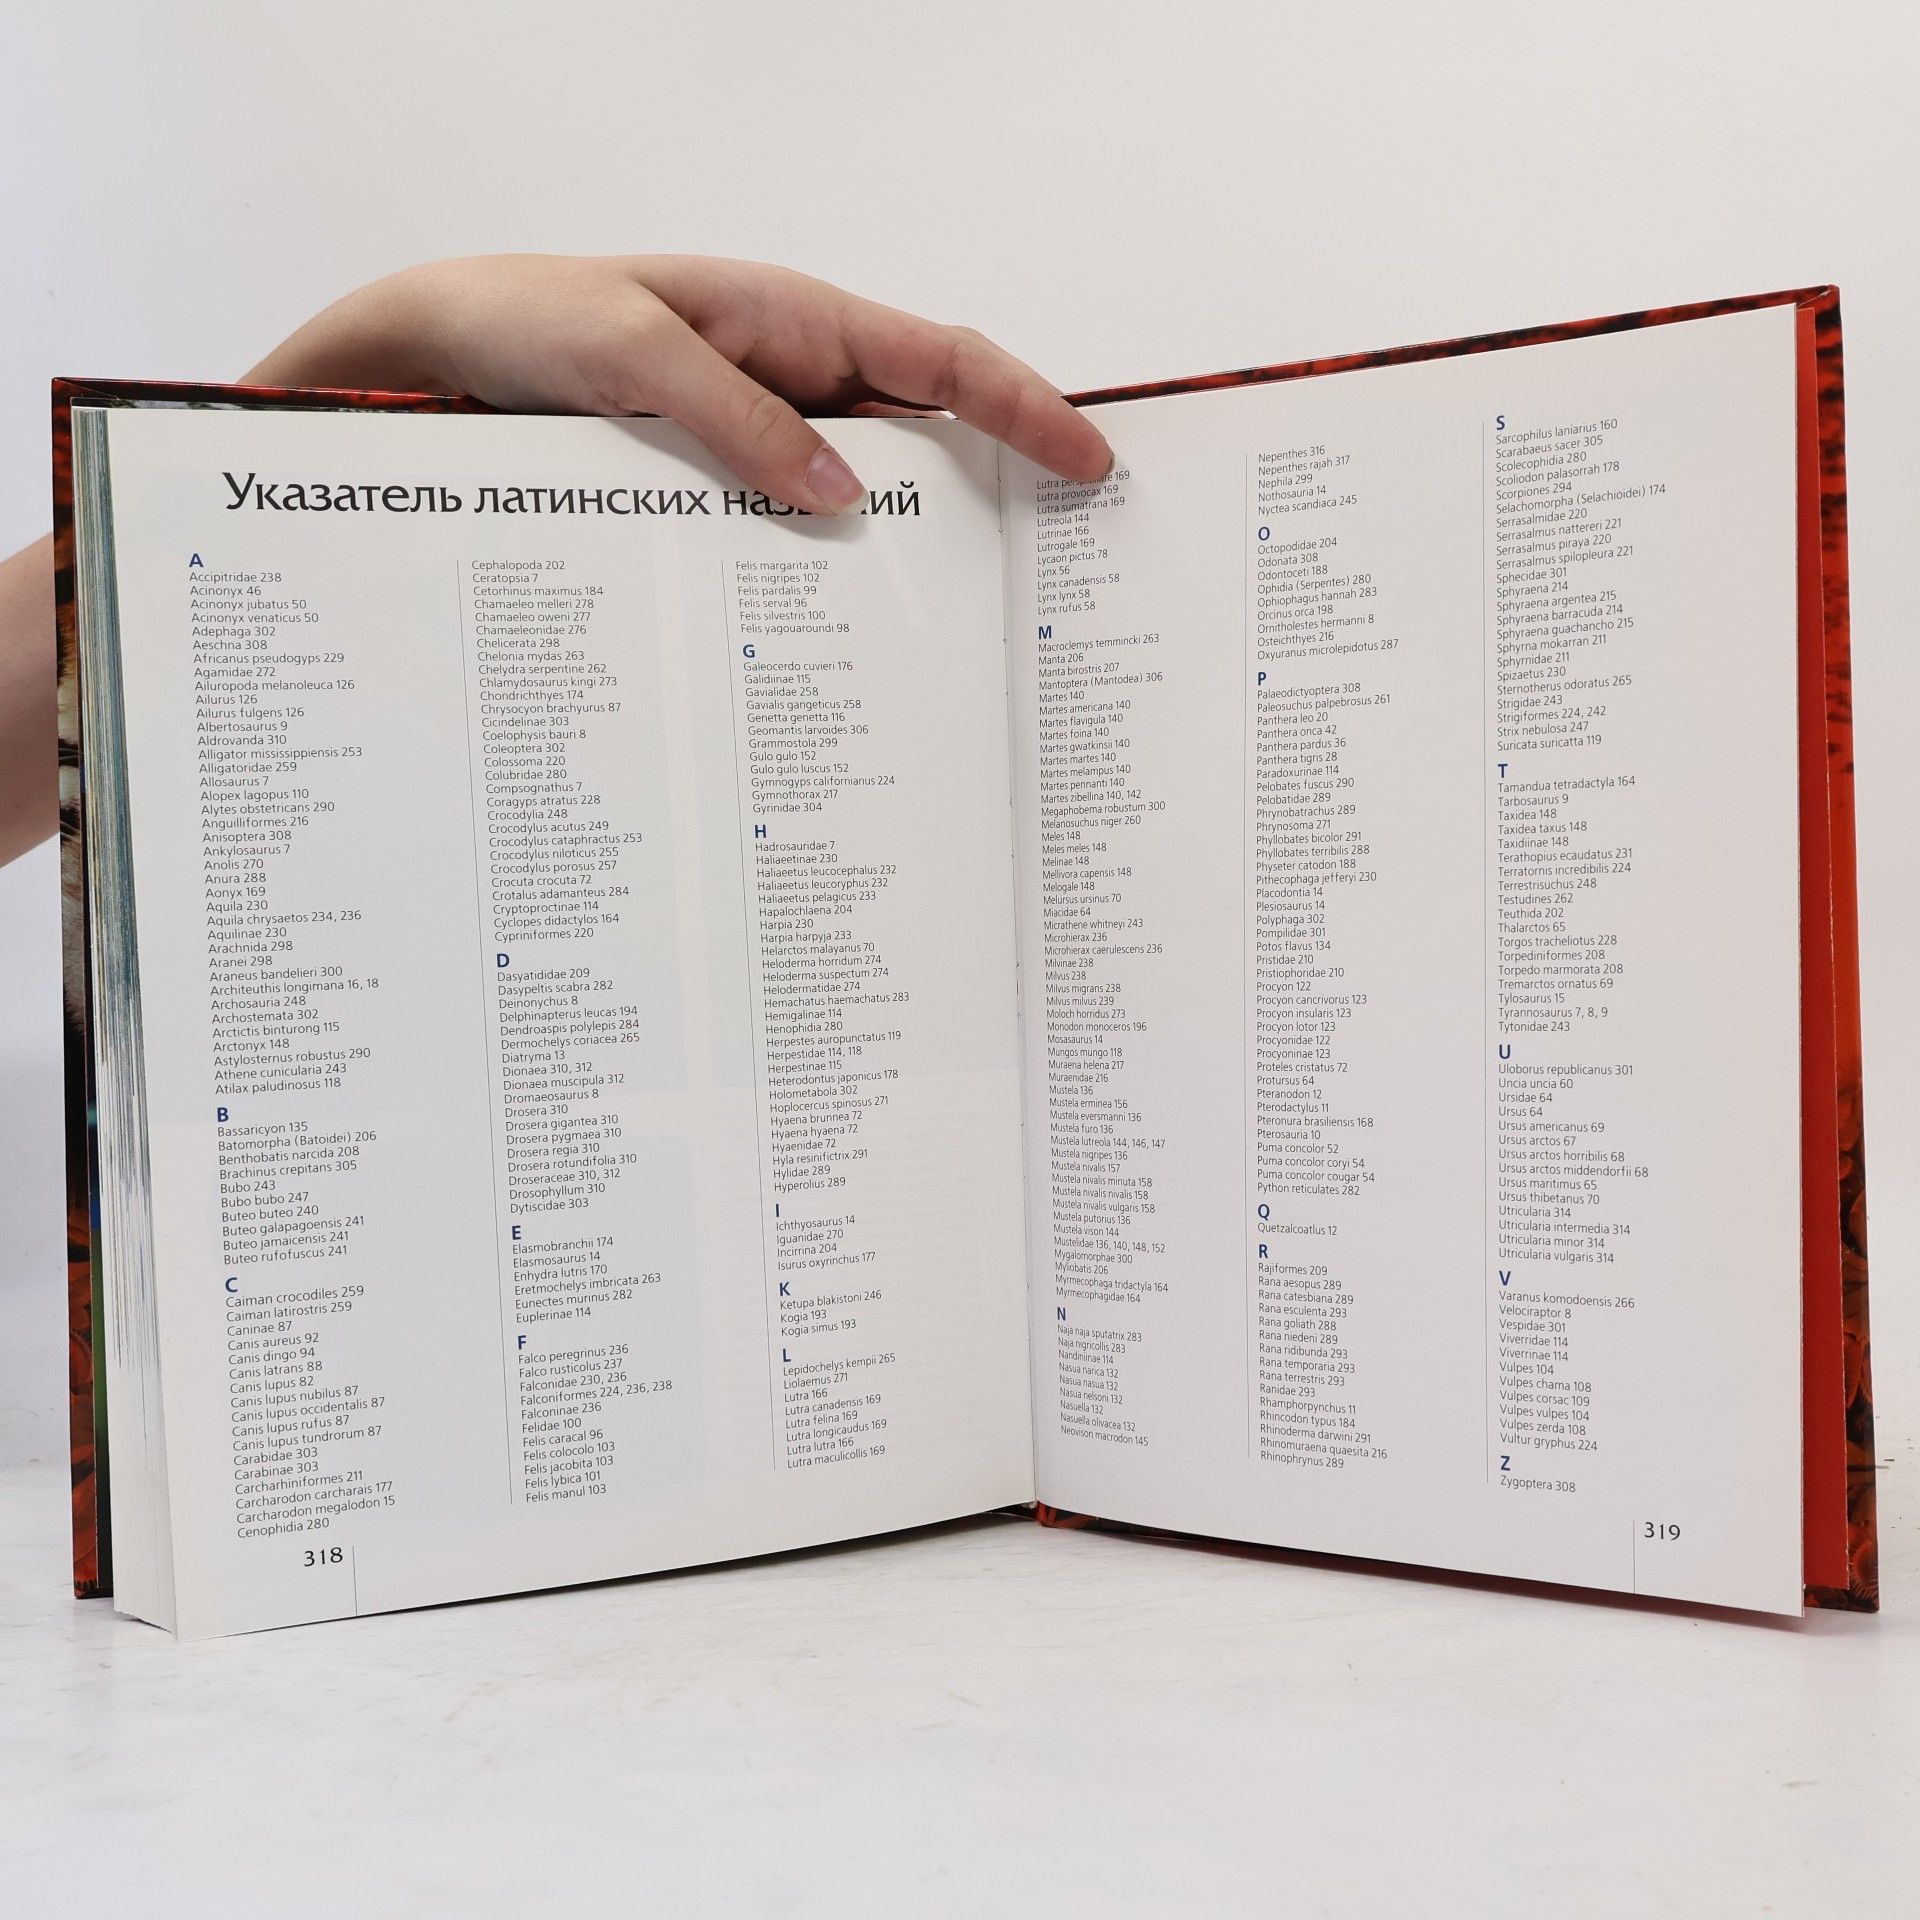 Указатель латинских
A
Accipitridae 238
Acinonyx 46
Acinonyx jubatus 50
Acinonyx venaticus 50
Adephaga 302
Aeschna 308
Africanus pseudogyps 229
Agamidae 272
Ailuropoda melanoleuca 126
Ailurus 126
Ailurus fulgens 126
Albertosaurus 9
Aldrovanda 310
Alligator mississippiensis 253
Alligatoridae 259
Allosaurus 7
Alopex lagopus 110
Alytes obstetricans 290
Anguilliformes 216
Anisoptera 308
Ankylosaurus 7
Anolis 270
Anura 288
Aonyx 169
Aquila 230
Aquila chrysaetos 234, 236
Aquilinae 230
Arachnida 298
Aranei 298
Araneus bandelieri 300
Architeuthis longimana 16, 18
Archosauria 248
Archostemata 302
Arctictis binturong 115
Arctonyx 148
Astylosternus robustus 290
Athene cunicularia 243
Atilax paludinosus 118
B
Bassaricyon 135
Batomorpha (Batoidei) 206
Benthobatis narcida 208
Brachinus crepitans 305
Bubo 243
Bubo bubo 247
Buteo buteo 240
Buteo galapagoensis 241
Buteo jamaicensis 241
Buteo rufofuscus 241
C
Caiman crocodiles 259
Caiman latirostris 259
Caninae 87
Canis aureus 92
Canis dingo 94
Canis latrans 88
Canis lupus 82
Canis lupus nubilus 87
Canis lupus occidentalis 87
Canis lupus rufus 87
Canis lupus tundrorum 87
Carabidae 303
Carabinae 303
Carcharhiniformes 211
Carcharodon carcharais 177
Carcharodon megalodon 15
Cenophidia 280
Cephalopoda 202
Ceratopsia 7
Cetorhinus maximus 184
Chamaeleo melleri 278
Chamaeleo oweni 277
Chamaeleonidae 276
Chelicerata 298
Chelonia mydas 263
Chelydra serpentine 262
Chlamydosaurus kingi 273
Chondrichthyes 174
Chrysocyon brachyurus 87
Cicindelinae 303
Coelophysis bauri 8
Coleoptera 302
Colossoma 220
Colubridae 280
Compsognathus 7
Coragyps atratus 228
Crocodylia 248
Crocodylus acutus 249
Crocodylus cataphractus 253
Crocodylus niloticus 255
Crocodylus porosus 257
Crocuta crocuta 72
Crotalus adamanteus 284
Cryptoproctinae 114
Cyclopes didactylos 164
Cypriniformes 220
D
Dasyatididae 209
Dasypeltis scabra 282
Deinonychus 8
Delphinapterus leucas 194
Dendroaspis polylepis 284
Dermochelys coriacea 265
Diatryma 13
Dionaea 310, 312
Dionaea muscipula 312
Dromaeosaurus 8
Drosera 310
Drosera gigantea 310
Drosera pygmaea 310
Drosera regia 310
Drosera rotundifolia 310
Droseraceae 310, 312
Drosophyllum 310
Dytiscidae 303
E
Elasmobranchii 174
Elasmosaurus 14
Enhydra lutris 170
Eretmochelys imbricata 263
Eunectes murinus 282
Euplerinae 114
F
Falco peregrinus 236
Falco rusticolus 237
Falconidae 230, 236
Falconiformes 224, 236, 238
Falconinae 236
Felidae 100
Felis caracal 96
Felis colocolo 103
Felis jacobita 103
Felis lybica 101
Felis manul 103
Felis margarita 102
Felis nigripes 102
Felis pardalis 99
Felis serval 96
Felis silvestris 100
Felis yagouaroundi 98
G
Galeocerdo cuvieri 176
Galidiinae 115
Gavialidae 258
Gavialis gangeticus 258
Genetta genetta 116
Geomantis larvoides 306
Grammostola 299
Gulo gulo 152
Gulo gulo luscus 152
Gymnogyps californianus 224
Gymnothorax 217
Gyrinidae 304
H
Hadrosauridae 7
Haliaeetinae 230
Haliaeetus leucocephalus 232
Haliaeetus leucoryphus 232
Haliaeetus pelagicus 233
Hapalochlaena 204
Harpia 230
Harpia harpyja 233
Helarctos malayanus 70
Heloderma horridum 274
Heloderma suspectum 274
Helodermatidae 274
Hemachatus haemachatus 283
Hemigalinae 114
Henophidia 280
Herpestes auropunctatus 119
Herpestidae 114, 118
Herpestinae 115
Heterodontus japonicus 178
Holometabola 302
Hoplocercus spinosus 271
Hyaena brunnea 72
Hyaena hyaena 72
Hyaenidae 72
Hyla resinifictrix 291
Hylidae 289
Hyperolius 289
I
Ichthyosaurus 14
Iguanidae 270
Incirrina 204
Isurus oxyrinchus 177
K
Ketupa blakistoni 246
Kogia 193
Kogia simus 193
L
Lepidochelys kempii 265
Liolaemus 271
Lutra 166
Lutra canadensis 169
Lutra felina 169
Lutra longicaudus 169
Lutra lutra 166
Lutra maculicollis 169
318
Lutra 169
Lutra provocax 169
Lutra sumatrana 169
Lutreola 144
Lutrinae 166
Lutrogale 169
Lycaon pictus 78
Lynx 56
Lynx canadensis 58
Lynx lynx 58
Lynx rufus 58
M
Macroclemys temmincki 263
Manta 206
Manta birostris 207
Mantoptera (Mantodea) 306
Martes 140
Martes americana 140
Martes flavigula 140
Martes foina 140
Martes gwatkinsii 140
Martes martes 140
Martes melampus 140
Martes pennanti 140
Martes zibellina 140, 142
Megaphobema robustum 300
Melanosuchus niger 260
Meles 148
Meles meles 148
Melinae 148
Mellivora capensis 148
Melogale 148
Melursus ursinus 70
Miacidae 64
Micrathene whitneyi 243
Microhierax 236
Microhierax caerulescens 236
Milvinae 238
Milvus 238
Milvus migrans 238
Milvus milvus 239
Moloch horridus 273
Monodon monoceros 196
Mosasaurus 14
Mungos mungo 118
Muraena helena 217
Muraenidae 216
Mustela 136
Mustela erminea 156
Mustela eversmanni 136
Mustela furo 136
Mustela lutreola 144, 146, 147
Mustela nigripes 136
Mustela nivalis 157
Mustela nivalis minuta 158
Mustela nivalis nivalis 158
Mustela nivalis vulgaris 158
Mustela putorius 136
Mustela vison 144
Mustelidae 136, 140, 148, 152
Mygalomorphae 300
Myliobatis 206
Myrmecophaga tridactyla 164
Myrmecophagidae 164
N
Naja naja sputatrix 283
Naja nigricollis 283
Nandmiinae 114
Nasua narica 132
Nasua nasua 132
Nasua nelsoni 132
Nasuella 132
Nasuella olivacea 132
Neovison macrodon 145
Nepenthes 316
Nepenthes rajah 317
Nephila 299
Nothosauria 14
Nyctea scandiaca 245
O
Octopodidae 204
Odonata 308
Odontoceti 188
Ophidia (Serpentes) 280
Ophiophagus hannah 283
Orcinus orca 198
Ornitholestes hermanni 8
Osteichthyes 216
Oxyuranus microlepidotus 287
P
Palaeodictyoptera 308
Paleosuchus palpebrosus 261
Panthera leo 20
Panthera onca 42
Panthera pardus 36
Panthera tigris 28
Paradoxurinae 114
Pelobates fuscus 290
Pelobatidae 289
Phrynobatrachus 289
Phrynosoma 271
Phyllobates bicolor 291
Phyllobates terribilis 288
Physeter catodon 188
Pithecophaga jefferyi 230
Placodontia 14
Plesiosaurus 14
Polyphaga 302
Pompilidae 301
Potos flavus 134
Pristidae 210
Pristiophoridae 210
Procyon 122
Procyon cancrivorus 123
Procyon insularis 123
Procyon lotor 123
Procyonidae 122
Procyoninae 123
Proteles cristatus 72
Protursus 64
Pteranodon 12
Pterodactylus 11
Pteronura brasiliensis 168
Pterosauria 10
Puma concolor 52
Puma concolor coryi 54
Puma concolor cougar 54
Python reticulates 282
Q
Quetzalcoatlus 12
R
Rajiformes 209
Rana aesopus 289
Rana catesbiana 289
Rana esculenta 293
Rana goliath 288
Rana niedeni 289
Rana ridibunda 293
Rana temporaria 293
Rana terrestris 293
Ranidae 293
Rhamphorpynchus 11
Rhincodon typus 184
Rhinoderma darwini 291
Rhinomuraena quaesita 216
Rhinophrynus 289
S
Sarcophilus laniarius 160
Scarabaeus sacer 305
Scolecophidia 280
Scoliodon palasorrah 178
Scorpiones 294
Selachomorpha (Selachioidei) 174
Serrasalmidae 220
Serrasalmus nattereri 221
Serrasalmus piraya 220
Serrasalmus spilopleura 221
Sphecidae 301
Sphyraena 214
Sphyraena argentea 215
Sphyraena barracuda 214
Sphyraena guachancho 215
Sphyrna mokarran 211
Sphyrnidae 211
Spizaetus 230
Sternotherus odoratus 265
Strigidae 243
Strigiformes 224, 242
Strix nebulosa 247
Suricata suricatta 119
T
Tamandua tetradactyla 164
Tarbosaurus 9
Taxidea 148
Taxidea taxus 148
Taxidiinae 148
Terathopius ecaudatus 231
Terratornis incredibilis 224
Terrestrisuchus 248
Testudines 262
Teuthida 202
Thalarctos 65
Torgos tracheliotus 228
Torpediniformes 208
Torpedo marmorata 208
Tremarctos ornatus 69
Tylosaurus 15
Tyrannosaurus 7, 8, 9
Tytonidae 243
U
Uloborus republicanus 301
Uncia uncia 60
Ursidae 64
Ursus 64
Ursus americanus 69
Ursus arctos 67
Ursus arctos horribilis 68
Ursus arctos middendorfii 68
Ursus maritimus 65
Ursus thibetanus 70
Utricularia 314
Utricularia intermedia 314
Utricularia minor 314
Utricularia vulgaris 314
V
Varanus komodoensis 266
Velociraptor 8
Vespidae 301
Viverridae 114
Viverrinae 114
Vulpes 104
Vulpes chama 108
Vulpes corsac 109
Vulpes vulpes 104
Vulpes zerda 108
Vultur gryphus 224
Z
Zygoptera 308
319